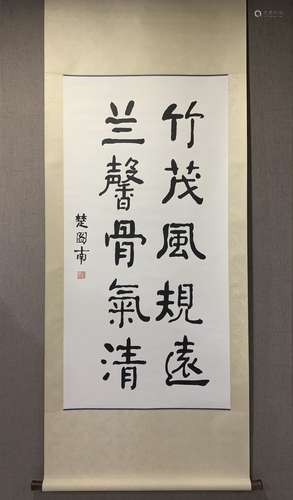 竹茂風規遠
兰馨骨氣清
楚圖南